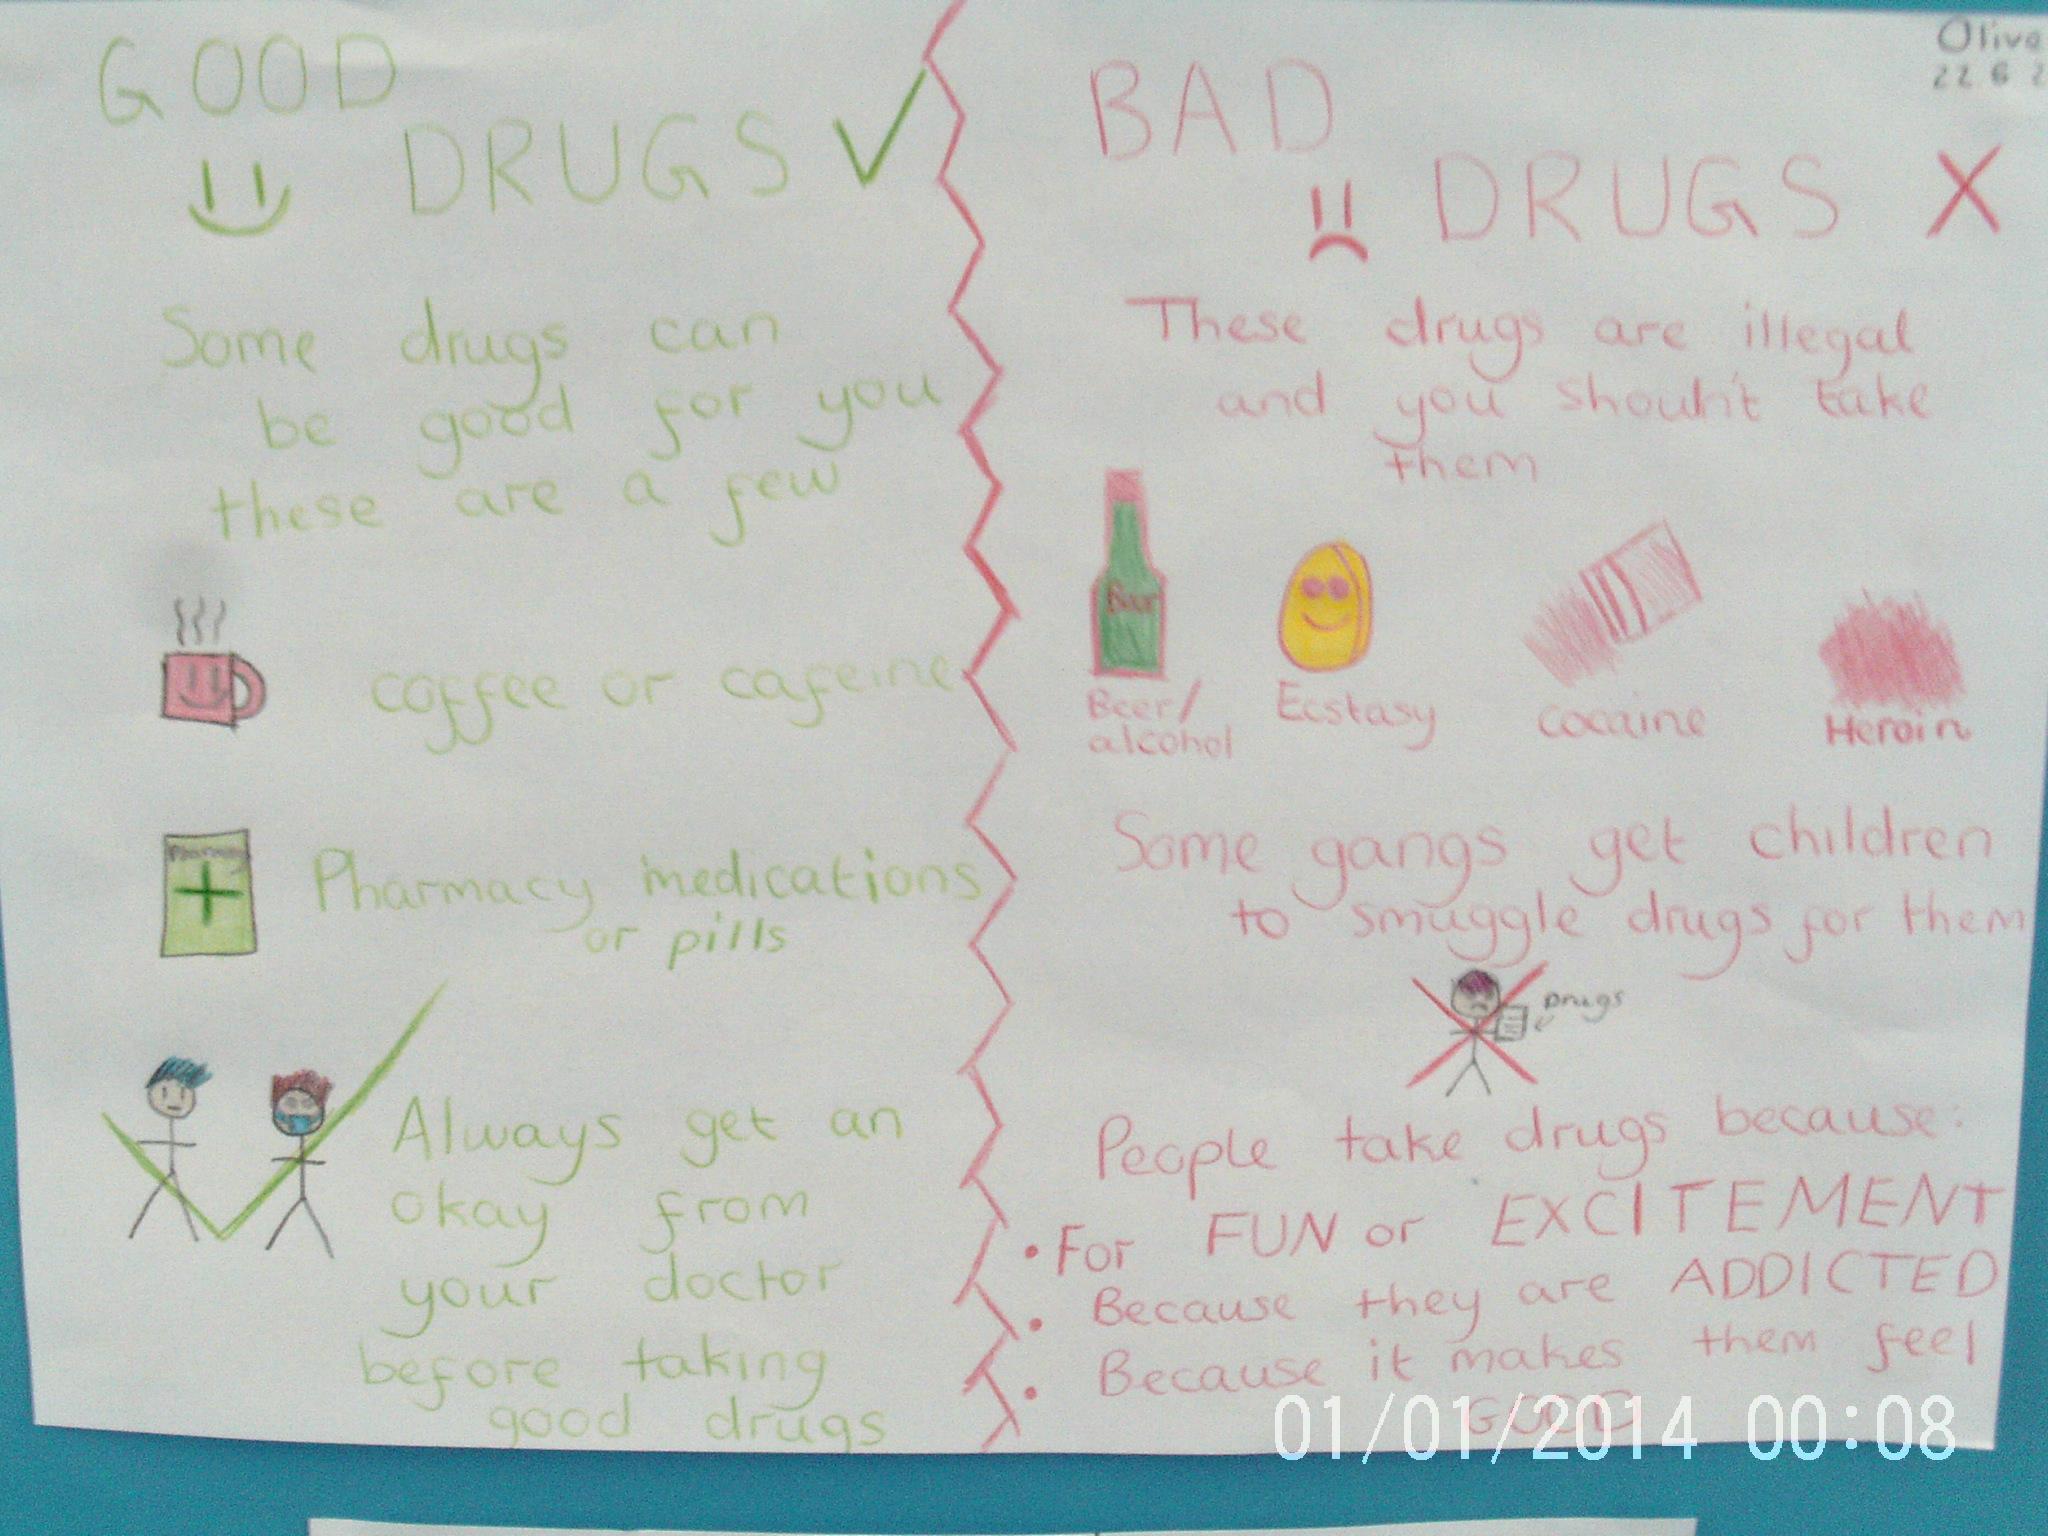 GOOD
DRUGS
Some drugs can
be good for you
these are a few
coffee or cafeine
Pharmacy
Pharmacy medications
or pills
Always get an
okay from
your doctor
before taking
good drugs
Olive
22 6 2
BAD
DRUGS X
These drugs are illegal
and you shouln't take
them
Beer
Beer/
alcohol
Ecstasy
cocaine
Heroin
Some gangs get children
to smuggle drugs for them
Drugs
People take drugs because:
• For FUN or EXCITEMENT
• Because they are ADDICTED
• Because it makes them feel
GOOD
01/01/2014 00:08